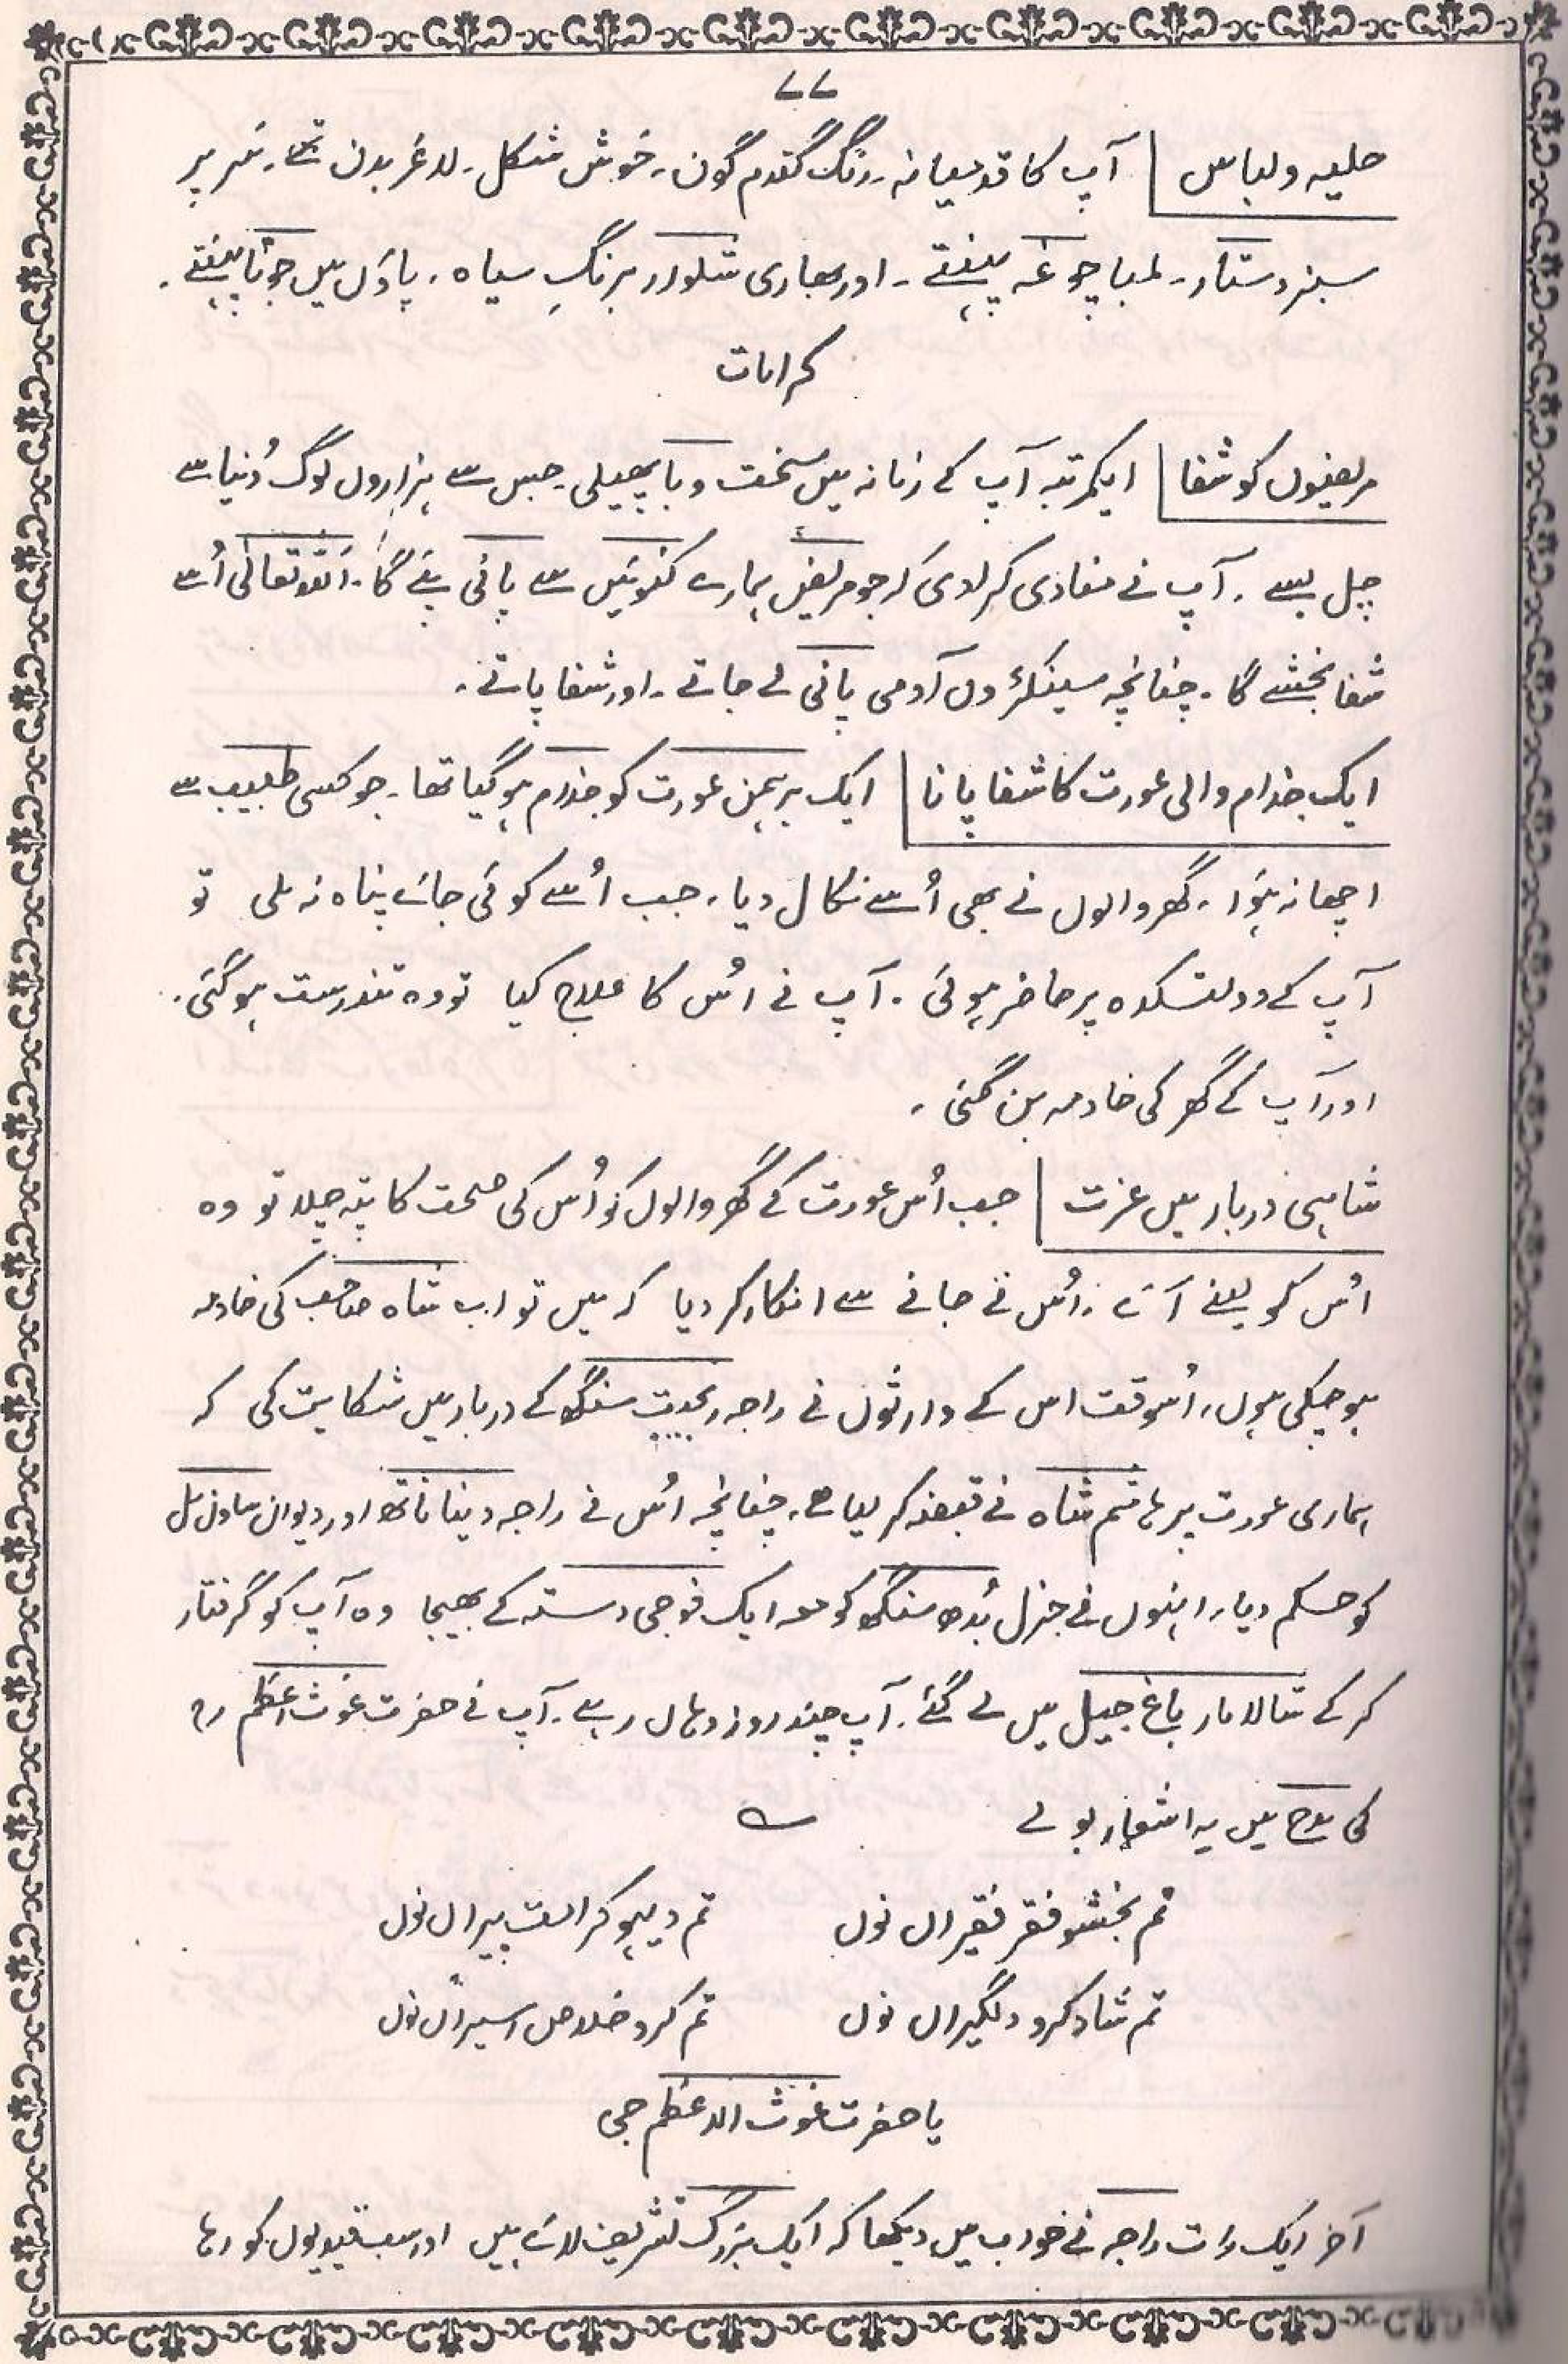 ۷۷
حلیہ و لباس | آپ کا قد میانہ۔ رنگ گندم گون۔ خوش شکل۔ لاغر بدن تھے۔ سر پر
سبز دستار۔ لمبا چوغہ پہنتے۔ اور بھاری شلوار برنگِ سیاہ۔ پاؤں میں جوتا پہنتے۔
کرامات
مریضوں کو شفا | ایکمرتبہ آپ کے زمانہ میں سخت وبا پھیلی۔ جس سے ہزاروں لوگ دُنیا سے
چل بسے۔ آپ نے منادی کرا دی کہ جو مریض ہمارے کنوئیں سے پانی پئے گا۔ اللہ تعالیٰ اُسے
شفا بخشے گا۔ چنانچہ سینکڑوں آدمی پانی لے جاتے۔ اور شفا پاتے۔
ایک جذام والی عورت کا شفا پانا | ایک برہمن عورت کو جذام ہوگیا تھا۔ جو کسی طبیب سے
اچھا نہ ہؤا۔ گھر والوں نے بھی اُسے نکال دیا۔ جب اُسے کوئی جائے پناہ نہ ملی تو
آپ کے دولتکدہ پر حاضر ہوئی۔ آپ نے اُس کا علاج کیا تو وہ تندرست ہو گئی۔
اور آپ کے گھر کی خادمہ بن گئی۔
شاہی دربار میں عزت | جب اُس عورت کے گھر والوں کو اُس کی صحت کا پتہ چلا تو وہ
اُس کو لینے آئے۔ اُس نے جانے سے انکار کر دیا کہ میں تو اب شاہ صاحب کی خادمہ
ہو چکی ہوں۔ اُسوقت اس کے وارثوں نے راجہ رنجیت سنگھ کے دربار میں شکایت کی کہ
ہماری عورت پر ہاشم شاہ نے قبضہ کر لیا ہے۔ چنانچہ اُس نے راجہ دینا ناتھ اور دیوان ساون مل
کو حکم دیا۔ انہوں نے جنرل بُدھ سنگھ کو معہ ایک فوجی دستہ کے بھیجا وہ آپ کو گرفتار
کر کے شالامار باغ جیل میں لے گئے۔ آپ چند روز وہاں رہے۔ آپ نے حضرت غوث اعظم رح
کی مدح میں یہ اشعار بولے
تم بخشو فقر فقیراں نوں تم دیہو کرامت پیراں نوں
تم شاد کرو دلگیراں نوں تم کرو خلاص اسیراں نوں
یا حضرت غوث الاعظم جی
آخر ایک رات راجہ نے خواب میں دیکھا کہ ایک بزرگ تشریف لائے ہیں اور سب قیدیوں کو رہا